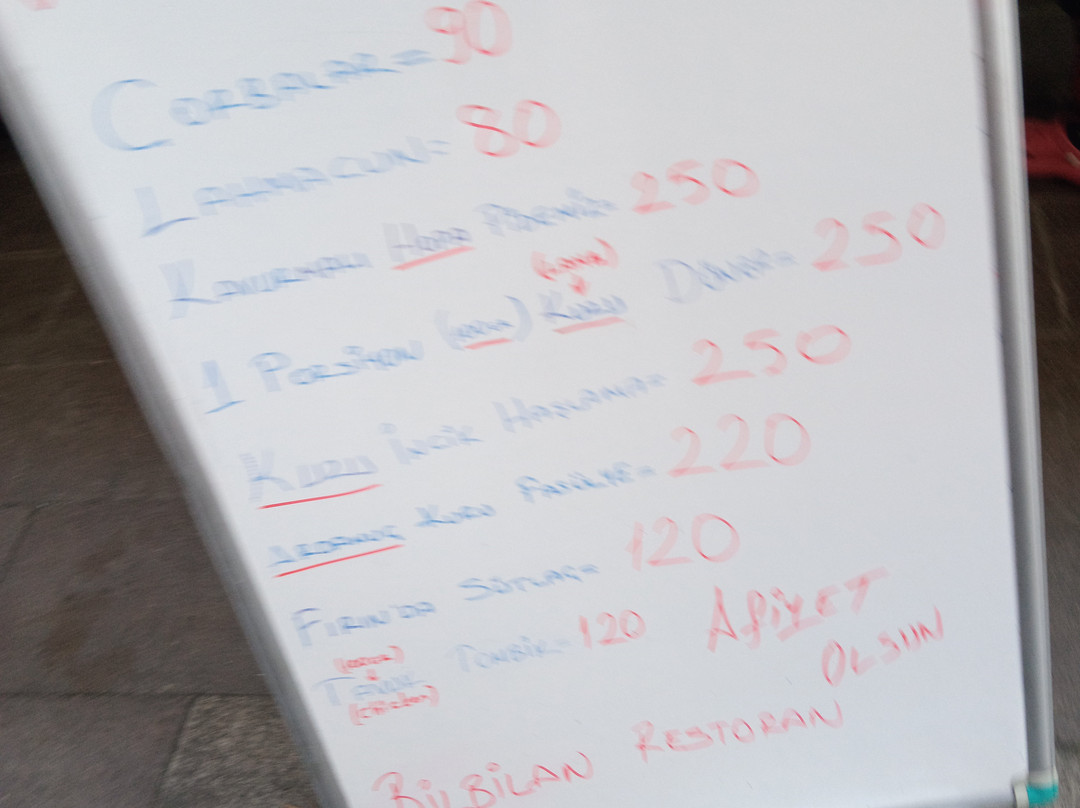 ÇORBALAR= 90
LAHMACUN= 80
KAVURMALI PİDEMİZ= 250
1 PORSİYON KURU DÖNER= 250
KUZU İNCİK HAŞLAMA= 250
ARDANUÇ KURU FASULYE= 220
FIRINDA SÜTLAÇ= 120
TAVUK TOMBİK= 120
(chicken)
AFİYET
OLSUN
BİLBİLAN RESTORAN